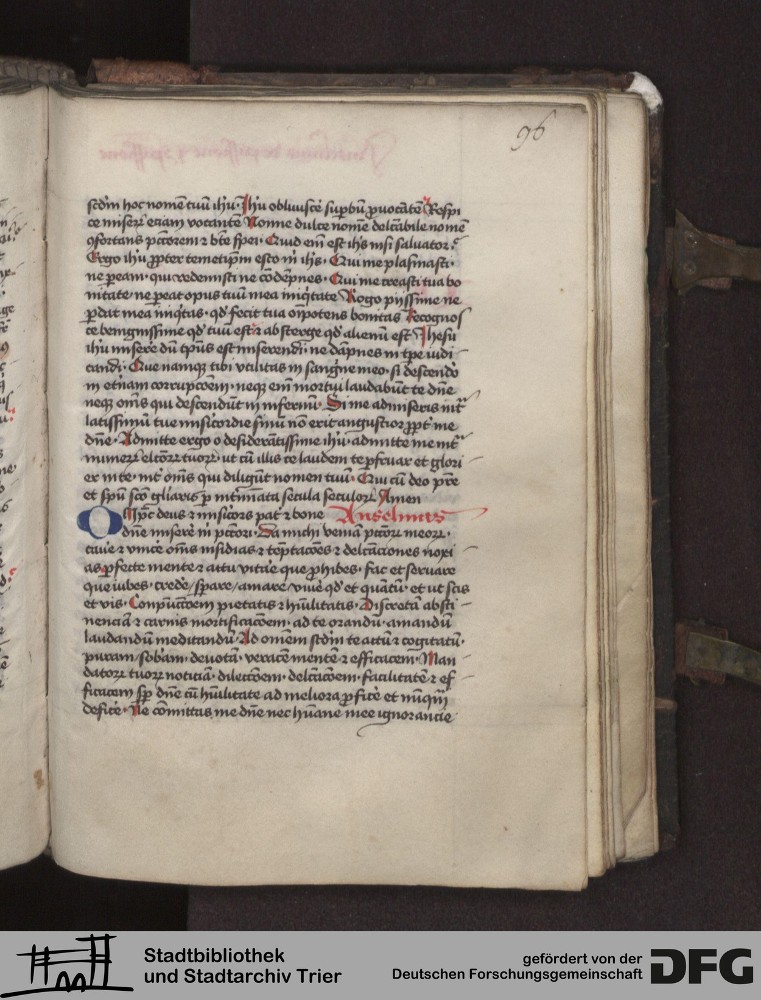 96
scdm hoc nomē tuū ihu· Ihu obliuisce supbū ꝓuocātē Respi
ce miserū etiam vocantē Nonne dulce nomē delcābile nomē
ꝯfortans pctorem ⁊ bte spei· Quid em̄ est ihs nisi saluator·
Ergo ihu ꝓpter temetipm esto m ihs· Qui me plasmasti·
ne peam· qui redemisti ne cōdēpnes· Qui me creasti tua bo
nitate· ne pereat opus tuū mea iniqtate Rogo pijssime ne
ꝑdat mea iniqtas· qd fecit tua oīpotens bonitas Recognos
ce benignissime qd tuū est ⁊ absterge qd alienū est Ihesu
ihu miserē dū tpus est miserendi· ne dāpnes in tpe iudi
candi· Que namqꝫ tibi vtilitas in sangne meo· si descendo
in etnam corrupcōem· neqꝫ em̄ mortui laudabūt te dn̄e
neqꝫ om̄s qui descendūt in infernū· Si me admiseris int
latissimū tue misericordie sinū nō erit angustior ꝓpt me
dn̄e· Admitte ergo o desideratissime ihu· admitte me int
numerū eltorꝝ tuorꝝ· ut cū illis te laudem te ꝑfruar et glori
er in te· int om̄s qui diligūt nomen tuū· Qui cū deo pre
et spū sco gliaris ꝑ intmīata secula seculorꝝ Amen
Omps deus ⁊ misicors pat ⁊ bone Anselmus
dn̄e miserē m pctori· Da michi veniā pctorꝝ meorꝝ·
cauē ⁊ vincē om̄s insidias ⁊ tēptacōes ⁊ delcāciones noxi
as ꝑfecte mente ⁊ actu vitāe que ꝓhibes· fac et seruare
que iubes· crede/ sparē/ amare/ viuē qd et quātū· et ut scis
et vis· Conpūccōem pietatis ⁊ hūilitatis· Discretā absti
nenciā ⁊ carnis mortificacōem· ad te orandū· amandū
laudandū meditandū· Ad omēm scdm te actū ⁊ cogitatū·
puram/ sobam· deuotā· veracē mente ⁊ efficacem· Man
datorꝝ tuorꝝ noticiā· dilectōem· delcācōem· facilitatē ⁊ ef
ficacem Sp dn̄e cū hūilitate ad meliora ꝓficē et nūqm̄
deficē· Ne cōmittas me dn̄e nec hūane mee ignorancie
Stadtbibliothek
und Stadtarchiv Trier
gefördert von der
Deutschen Forschungsgemeinschaft
DFG